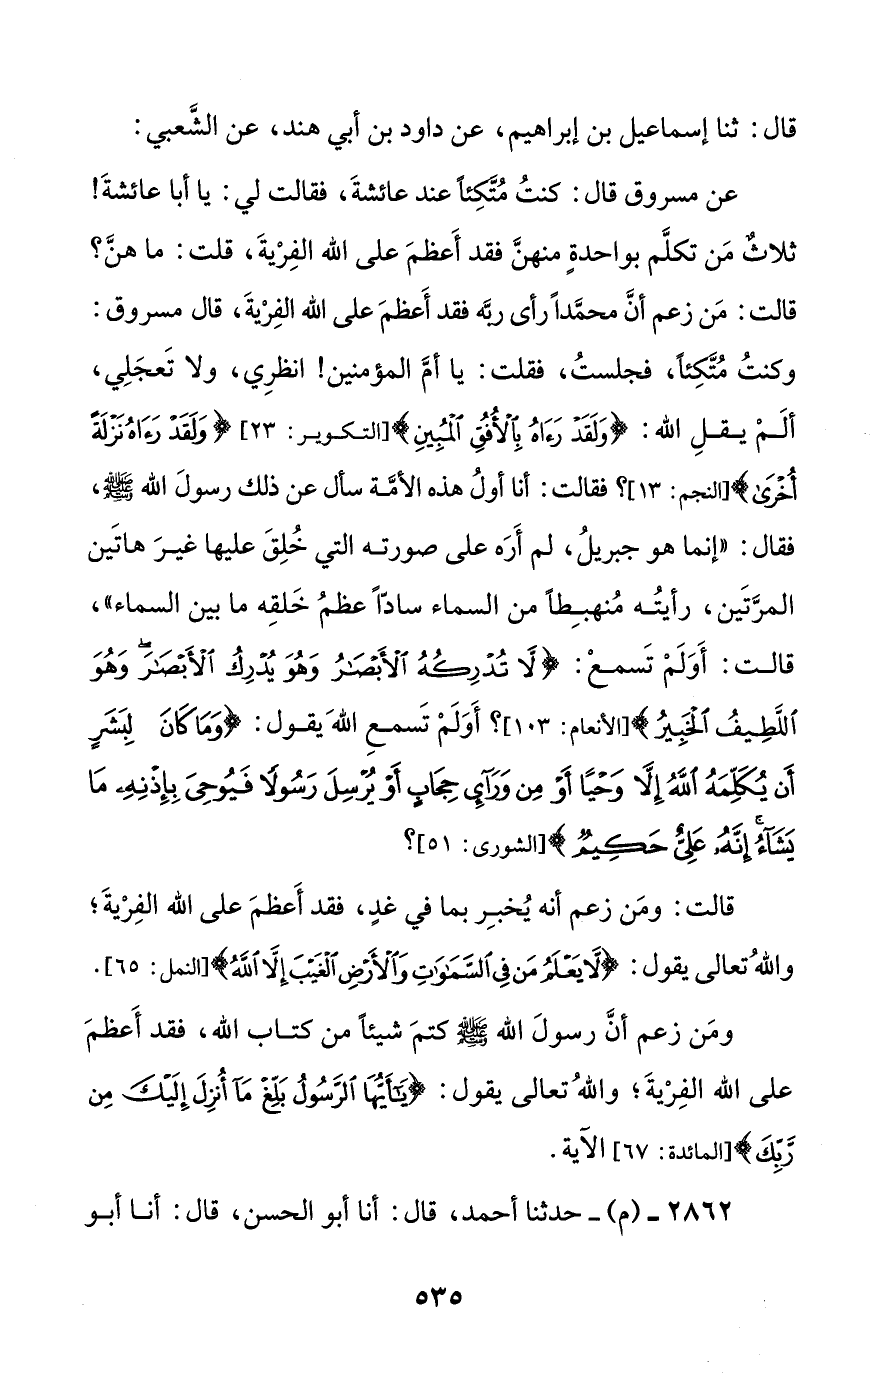 قال: ثنا إسماعيل بن إبراهيم، عن داود بن أبي هند، عن الشَّعبي:
عن مسروق قال: كنتُ مُتَّكِئاً عند عائشةَ، فقالت لي: يا أبا عائشةَ!
ثلاثٌ مَن تكلَّم بواحدةٍ منهنَّ فقد أَعظمَ على الله الفِرْيةَ، قلت: ما هنَّ؟
قالت: مَن زعم أنَّ محمَّداً رأى ربَّه فقد أَعظمَ على الله الفِرْيةَ، قال مسروق:
وكنتُ مُتَّكِئاً، فجلستُ، فقلت: يا أمَّ المؤمنين! انظرِي، ولا تَعجَلِي،
ألَمْ يقلِ الله: ﴿وَلَقَدْ رَءَاهُ بِٱلْأُفُقِ ٱلْمُبِينِ﴾[التكوير: ٢٣] ﴿وَلَقَدْ رَءَاهُ نَزْلَةً
أُخْرَىٰ﴾[النجم: ١٣]؟ فقالت: أنا أولُ هذه الأمَّة سأل عن ذلك رسولَ الله ﷺ،
فقال: «إنما هو جبريلُ، لم أَرَه على صورته التي خُلِقَ عليها غيرَ هاتَين
المرَّتَين، رأيتُه مُنهبِطاً من السماء سادّاً عظمُ خَلقِه ما بين السماء»،
قالت: أَوَلَمْ تَسمعْ: ﴿لَّا تُدْرِكُهُ ٱلْأَبْصَـٰرُ وَهُوَ يُدْرِكُ ٱلْأَبْصَـٰرَۖ وَهُوَ
ٱللَّطِيفُ ٱلْخَبِيرُ﴾[الأنعام: ١٠٣]؟ أَوَلَمْ تَسمعِ اللهَ يقول: ﴿وَمَا كَانَ لِبَشَرٍ
أَن يُكَلِّمَهُ ٱللَّهُ إِلَّا وَحْيًا أَوْ مِن وَرَآىِٕ حِجَابٍ أَوْ يُرْسِلَ رَسُولًا فَيُوحِىَ بِإِذْنِهِۦ مَا
يَشَآءُۚ إِنَّهُۥ عَلِىٌّ حَكِيمٌ﴾[الشورى: ٥١]؟
قالت: ومَن زعم أنه يُخبِر بما في غدٍ، فقد أَعظمَ على الله الفِرْيةَ؛
واللهُ تعالى يقول: ﴿لَّا يَعْلَمُ مَن فِى ٱلسَّمَـٰوَٰتِ وَٱلْأَرْضِ ٱلْغَيْبَ إِلَّا ٱللَّهُ﴾[النمل: ٦٥].
ومَن زعم أنَّ رسولَ الله ﷺ كتمَ شيئاً من كتاب الله، فقد أَعظمَ
على الله الفِرْيةَ؛ واللهُ تعالى يقول: ﴿يَـٰٓأَيُّهَا ٱلرَّسُولُ بَلِّغْ مَآ أُنزِلَ إِلَيْكَ مِن
رَّبِّكَ﴾[المائدة: ٦٧] الآية.
٢٨٦٢ ـ (م) ـ حدثنا أحمد، قال: أنا أبو الحسن، قال: أنا أبو
٥٣٥